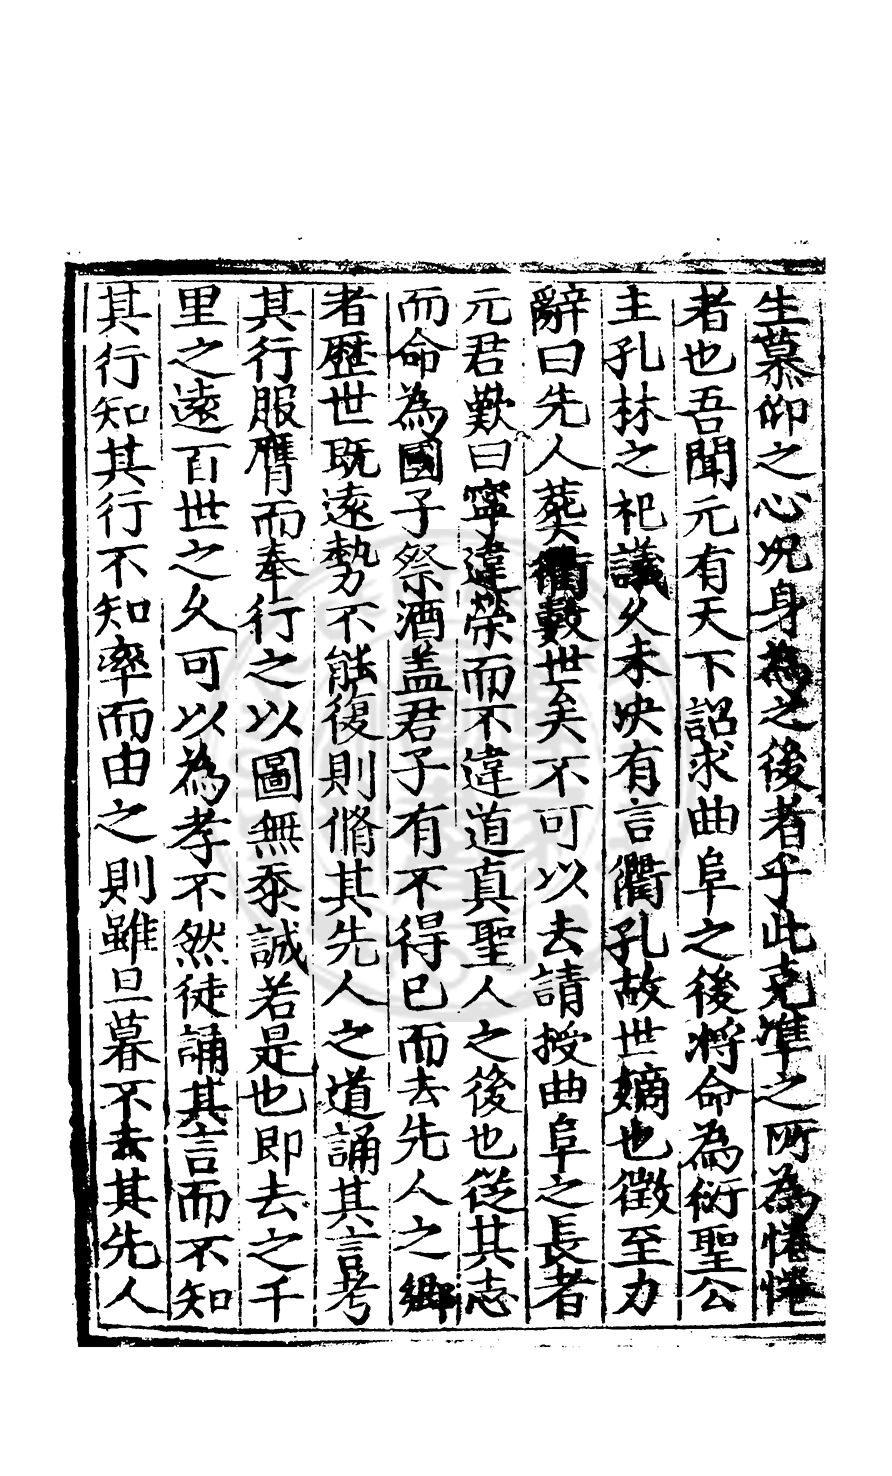 生慕仰之心况身為之後者乎此克準之所為惓惓
者也吾聞元有天下詔求曲阜之後将命為衍聖公
主孔林之祀議久未决有言衢孔故世嫡也徵至力
辭曰先人葬衢數世矣不可以去請授曲阜之長者
元君歎曰寧違榮而不違道真聖人之後也從其志
而命為國子祭酒盖君子有不得已而去先人之鄉
者歷世既逺勢不能復則脩其先人之道誦其言考
其行服膺而奉行之以圖無忝誠若是也即去之千
里之逺百世之久可以為孝不然徒誦其言而不知
其行知其行不知率而由之則雖旦暮不去其先人